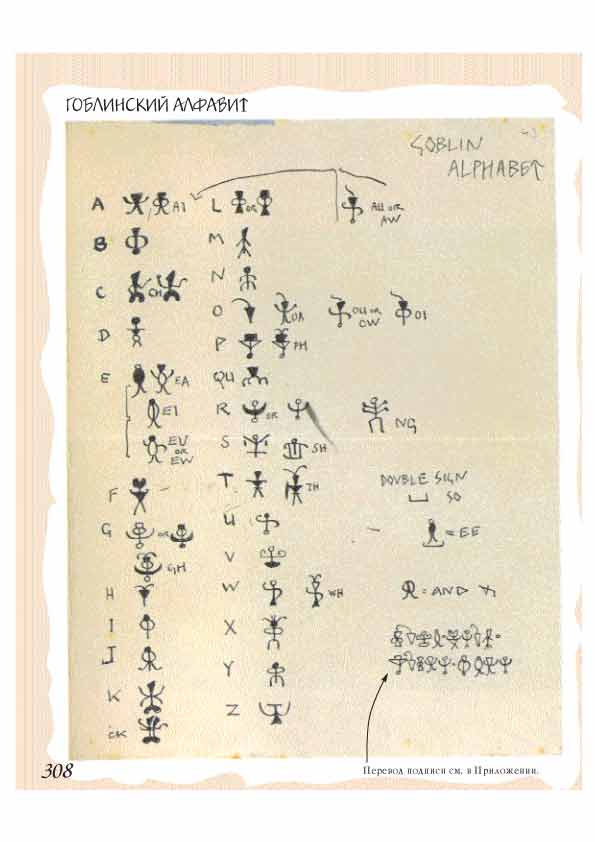 ГОБЛИНСКИЙ АЛФАВИТ
GOBLIN
ALPHABET
A AI
B
C CH
D
E EA
EI
EU
OR
EW
F
G OR
GH
H
I
J
K
CK
L OR
M
N
O OA
P PH
QU
R OR
S SH
T TH
U
V
W WH
X
Y
Z
AU OR
AW
OU OR
OW
OI
NG
DOUBLE SIGN
SO
= EE
= AND
308
Перевод подписи см. в Приложении.